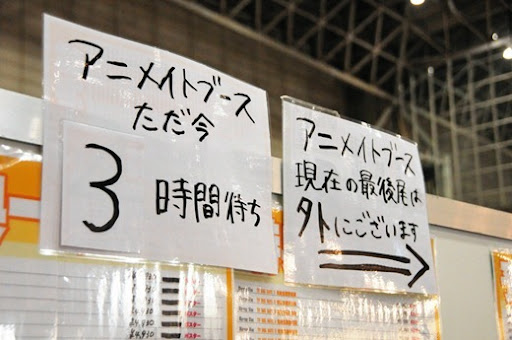 アニメイトブース
ただ今
3時間待ち
アニメイトブース
現在の最後尾は
外にございます